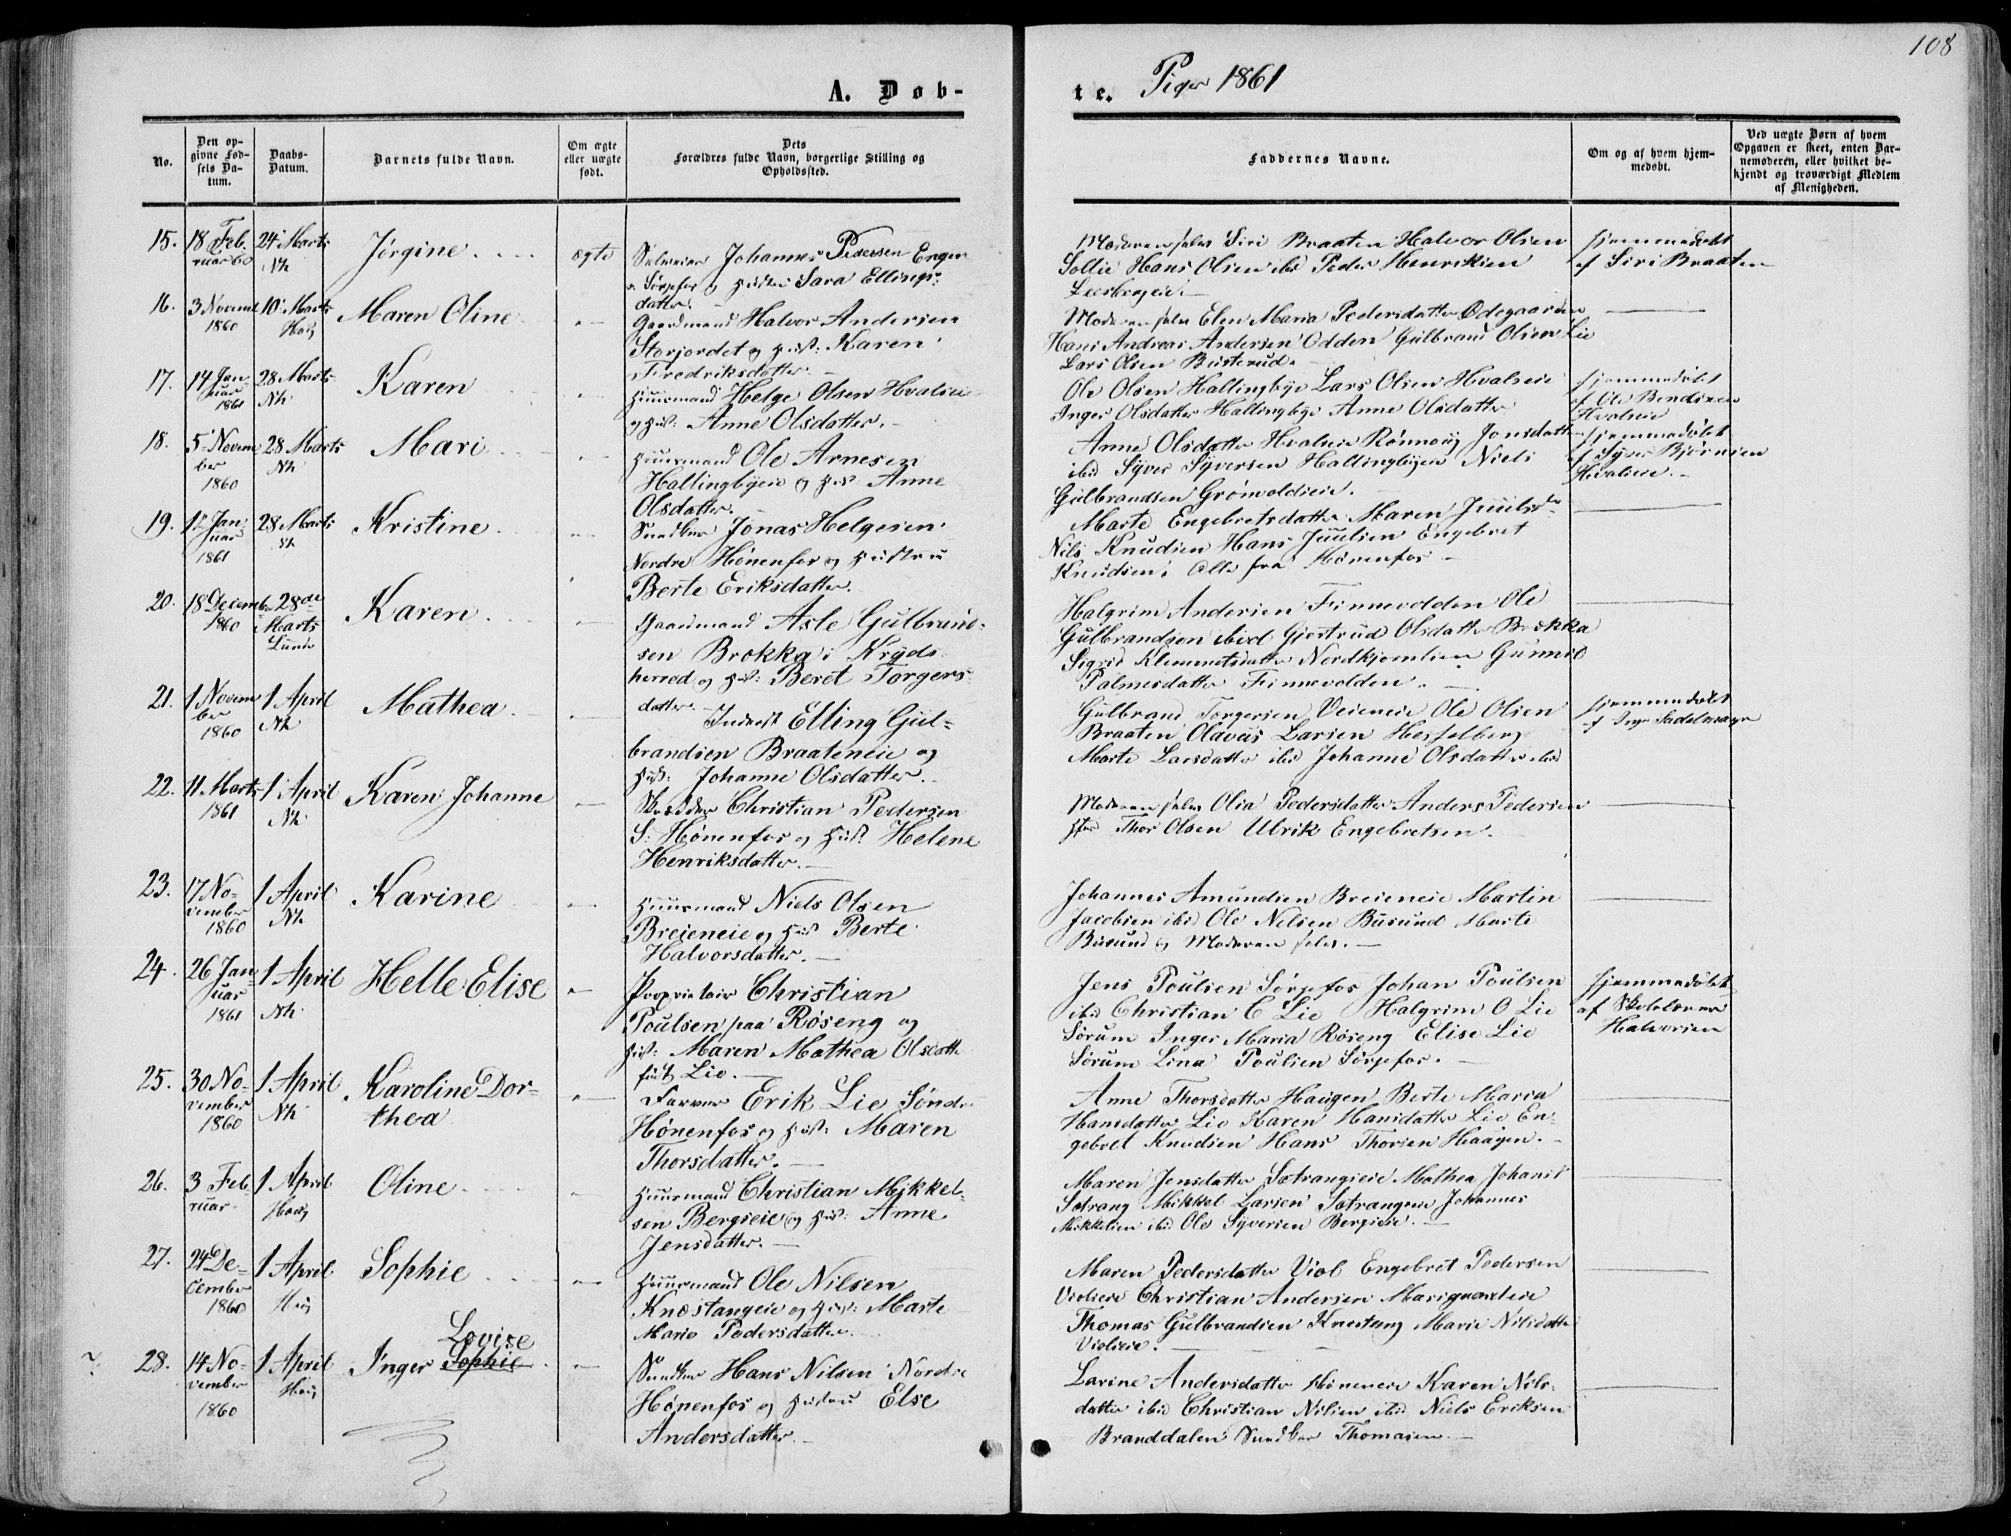 108
A. Døb-
te. Piger 1861
No.
Den op-
givne Fød-
sels Da-
tum.
Daabs-
Datum.
Barnets fulde Navn.
Om ægte
eller uægte
født.
Dets
Forældres fulde Navn, borgerlige Stilling og
Opholdssted.
Faddernes Navne.
Om og af hvem hjem-
medøbt.
Ved uægte Børn af hvem
Opgaven er skeet, enten Bar-
nemoderen, eller hvilket be-
kjendt og troværdigt Medlem
af Menigheden.
15. 18 Feb-
ruar 60
24 Marts
Nh
Jørgine
ægte
Johannes Pedersen Enger
v. Sørpefos og Hustru Sara Ellings-
datter.
Moderen selv Siri Braaten Halvor Olsen
Sollie Hans Olsen ibd Peder Henriksen
hjemmedøbt
af Siri Braaten
16. 3 Novemb
1860
10 Marts
Haug
Maren Oline
Gaardmand Halvor Andersen
Storjordet og Hust: Karen
Fredriksdatter.
Moderen selv Elen Maria Pedersdatter Ødegaarden
Hans Andreas Andersen Odden Gulbrand Olsen Lie
Lars Olsen Busterud.
17. 14 Jan-
uar
1861
28 Marts
Nh
Karen
Huusmand Helge Olsen Hvalseie
og Hust: Anne Olsdatter.
Ole Olsen Hallingbye Lars Olsen Hvalseie
Inger Olsdatter Hallingbye Anne Olsdatter
hjemmedøbt
af Ole Bendixen
Hvalseie
18. 5 Novem-
ber
1860
28 Marts
Nh
Mari
Huusmand Ole Arnesen
Hallingbyeie og Hust: Anne
Olsdatter.
Anne Olsdatter Hvalseie Rønnoug Jonsdatter
ibd Syver Syversen Hallingbyeie Niels
Gulbrandsen Grønvoldseie.
hjemmedøbt
Bjørnsen
Hvalseie.
19. 1 Jan-
uar
1861
28 Marts
Nh
Kristine
Jonas Helgesen
Nordre Hønenfos og Hustru
Berte Eriksdatter.
Marte Engebretsdatter Maren Juulsd
Nils Knudsen Hans Juulsen Engebret
Knudsen, alle fra Hønenfos
20. 18 Decemb
1860
28de
Marts
Lunde
Karen
Gaardmand Asle Gulbrand-
sen Brokka i Kryds-
herred og Hust: Beret Torgers-
datter.
Halgrim Andersen Finnevolden Ole
Gulbrandsen ibid Gjertrud Olsdatter Brokka
Sigrid Klemmetsdatter Nordkjernlien Gunnil
Palmesdatter Finnevolden.
21. 1 Novem
ber
1860
1 April
Nh
Mathea
Inderst Elling Gul-
brandsen Braateneie og
Hust: Johanne Olsdatter.
Gulbrand Torgersen Veieneie Ole Olsen
Braaten Olavus Larsen Hesselberg
Marte Larsdatter ibd Johanne Olsdatter ibd
hjemmedøbt
af
22. 11 Marts
1861
1 April
Nh
Karen Johanne
Skrædder Christian Pedersen
S: Hønenfos og Hust: Helene
Henriksdatter.
Moderen selv Olia Pedersdatter Anders Pedersen
Thor Olsen Ulrik Engebretsen.
23. 17 No-
vember
1860
1 April
Nh
Karine
Huusmand Niels Olsen
Breieneie og Hust Berte
Halvorsdatter.
Johannes Amundsen Breieneie Martin
Jacobsen ibd Ole Nelsen Busund Marte
Busund og Moderen selv.
24. 26 Jan
uar
1861
1 April
Nh
Helle Elise
Proprietair Christian
Poulsen paa Røseng og
Hust: Maren Mathea Olsdatter
født Lie.
Jens Poulsen Sørpefos Johan Poulsen
ibd Christian C Lie Halgrim O Lie
Sørum Inger Maria Røseng Elise Lie
Sørum Lina Poulsen Sørpefos.
hjemmedøbt
af Skolelærer
Halvorsen
25. 30 No-
vember
1860
1 April
Nh
Karoline Dor-
thea
Farver Erik Lie Søndre
Hønenfos og Hust: Maren
Thorsdatter.
Anne Thorsdatter Haugen Berte Maria
Hansdatter Lie Karen Hansdatter Lie En-
gebret Knudsen Hans Thorsen Haagen.
26. 3 Feb
ruar
1 April
Haug
Oline
Huusmand Christian Mikkel-
sen Bergseie og Hust: Anne
Jensdatter.
Maren Jensdatter Sotrangseie Mathea Johans
Sotrang Mikkel Larsen Sotrangseie Johannes
Mikkelsen ibd Ole Syversen Bergseie.
27. 24 De-
cember
1860
1 April
Haug
Sophie
Huusmand Ole Nilsen
Knæstangeie og Hust: Marte
Marie Pedersdatter.
Maren Pedersdatter Viol Engebret Pedersen
Violseie Christian Andersen
Thomas Gulbrandsen Knestang Marie Nilsdatter
Violseie.
28. 14 No-
vember
1860
1 April
Haug
Inger Sophie
Lovise
Hans Nilsen Nordre
Hønenfos og Hustru Else
Andersdatter.
Larine Andersdatter Hønenseie Karen Nils-
datter ibid Christian Nilsen ibid Niels Eriksen
Branddalen Thomasen.